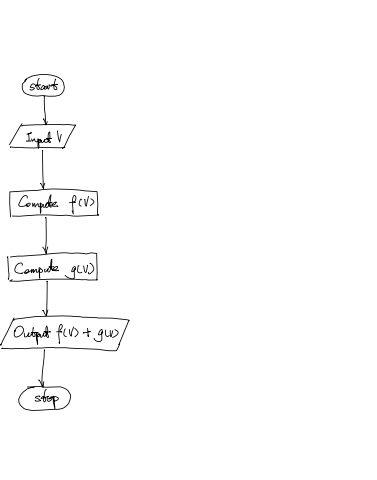 start
Input V
Compute f(V)
Compute g(V)
Output f(V) + g(V)
stop